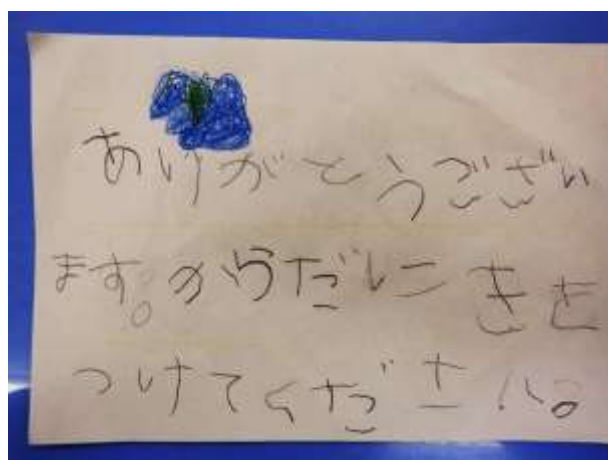 ありがとうござい
ます。からだにきを
つけてください。